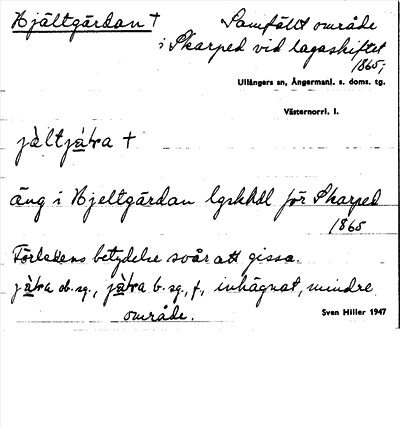 Hjältgårdan † Samfällt område
i Skarped vid lagaskiftet
1865;
Ullångers sn, Ångermanl. s. doms. tg.
Västernorrl. l.
jàltjàʹra †
äng i Hjeltgårdan lgskhdl för Skarped
1865
Förledens betydelse svår att gissa.
ob. sg., b. sg., f., inhägnat, mindre
område.
Sven Hiller 1947